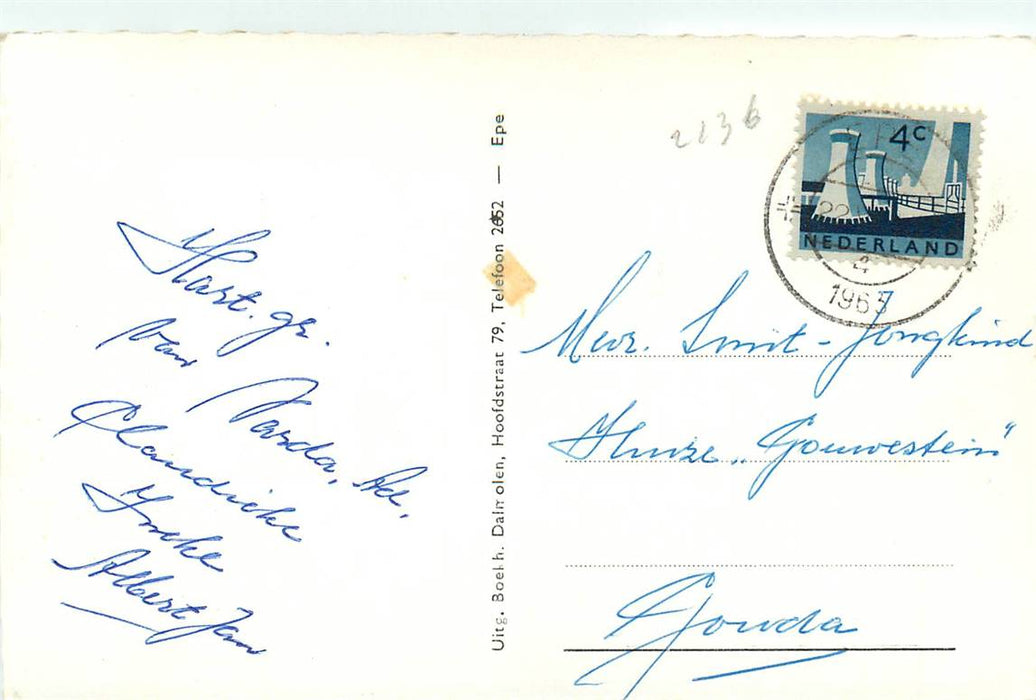 Hart. gr.
van Varda, Ad,
Claudicke
Imke
Albert Jan
Uitg. Boekh. Dalmolen, Hoofdstraat 79, Telefoon 2652 — Epe
2136
4c
NEDERLAND
EPE
22
4
1963
Mevr. Smit-Jongkind
Huize „Gouwestein"
Gouda